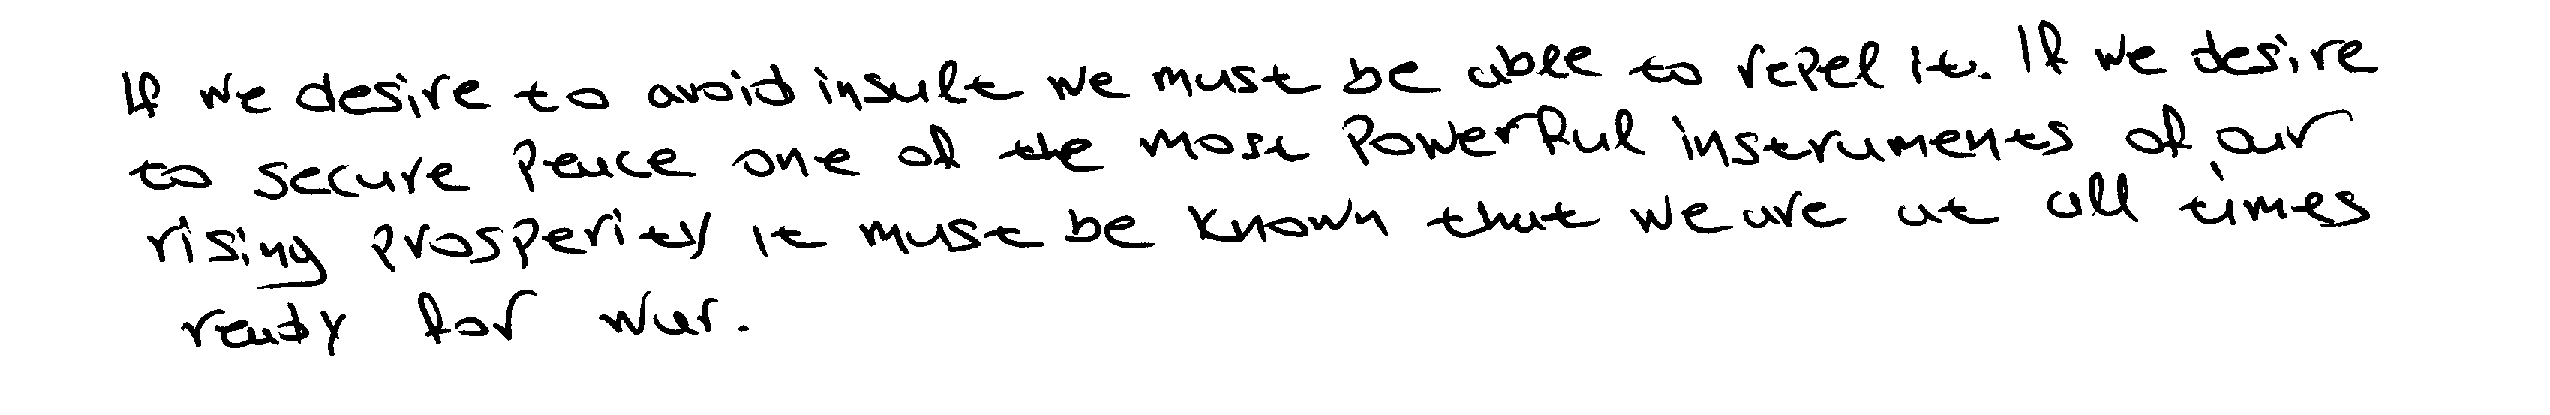 If we desire to avoid insult we must be able to repel it. If we desire
to secure peace one of the most powerful instruments of our
rising prosperity it must be known that we are at all times
ready for war.